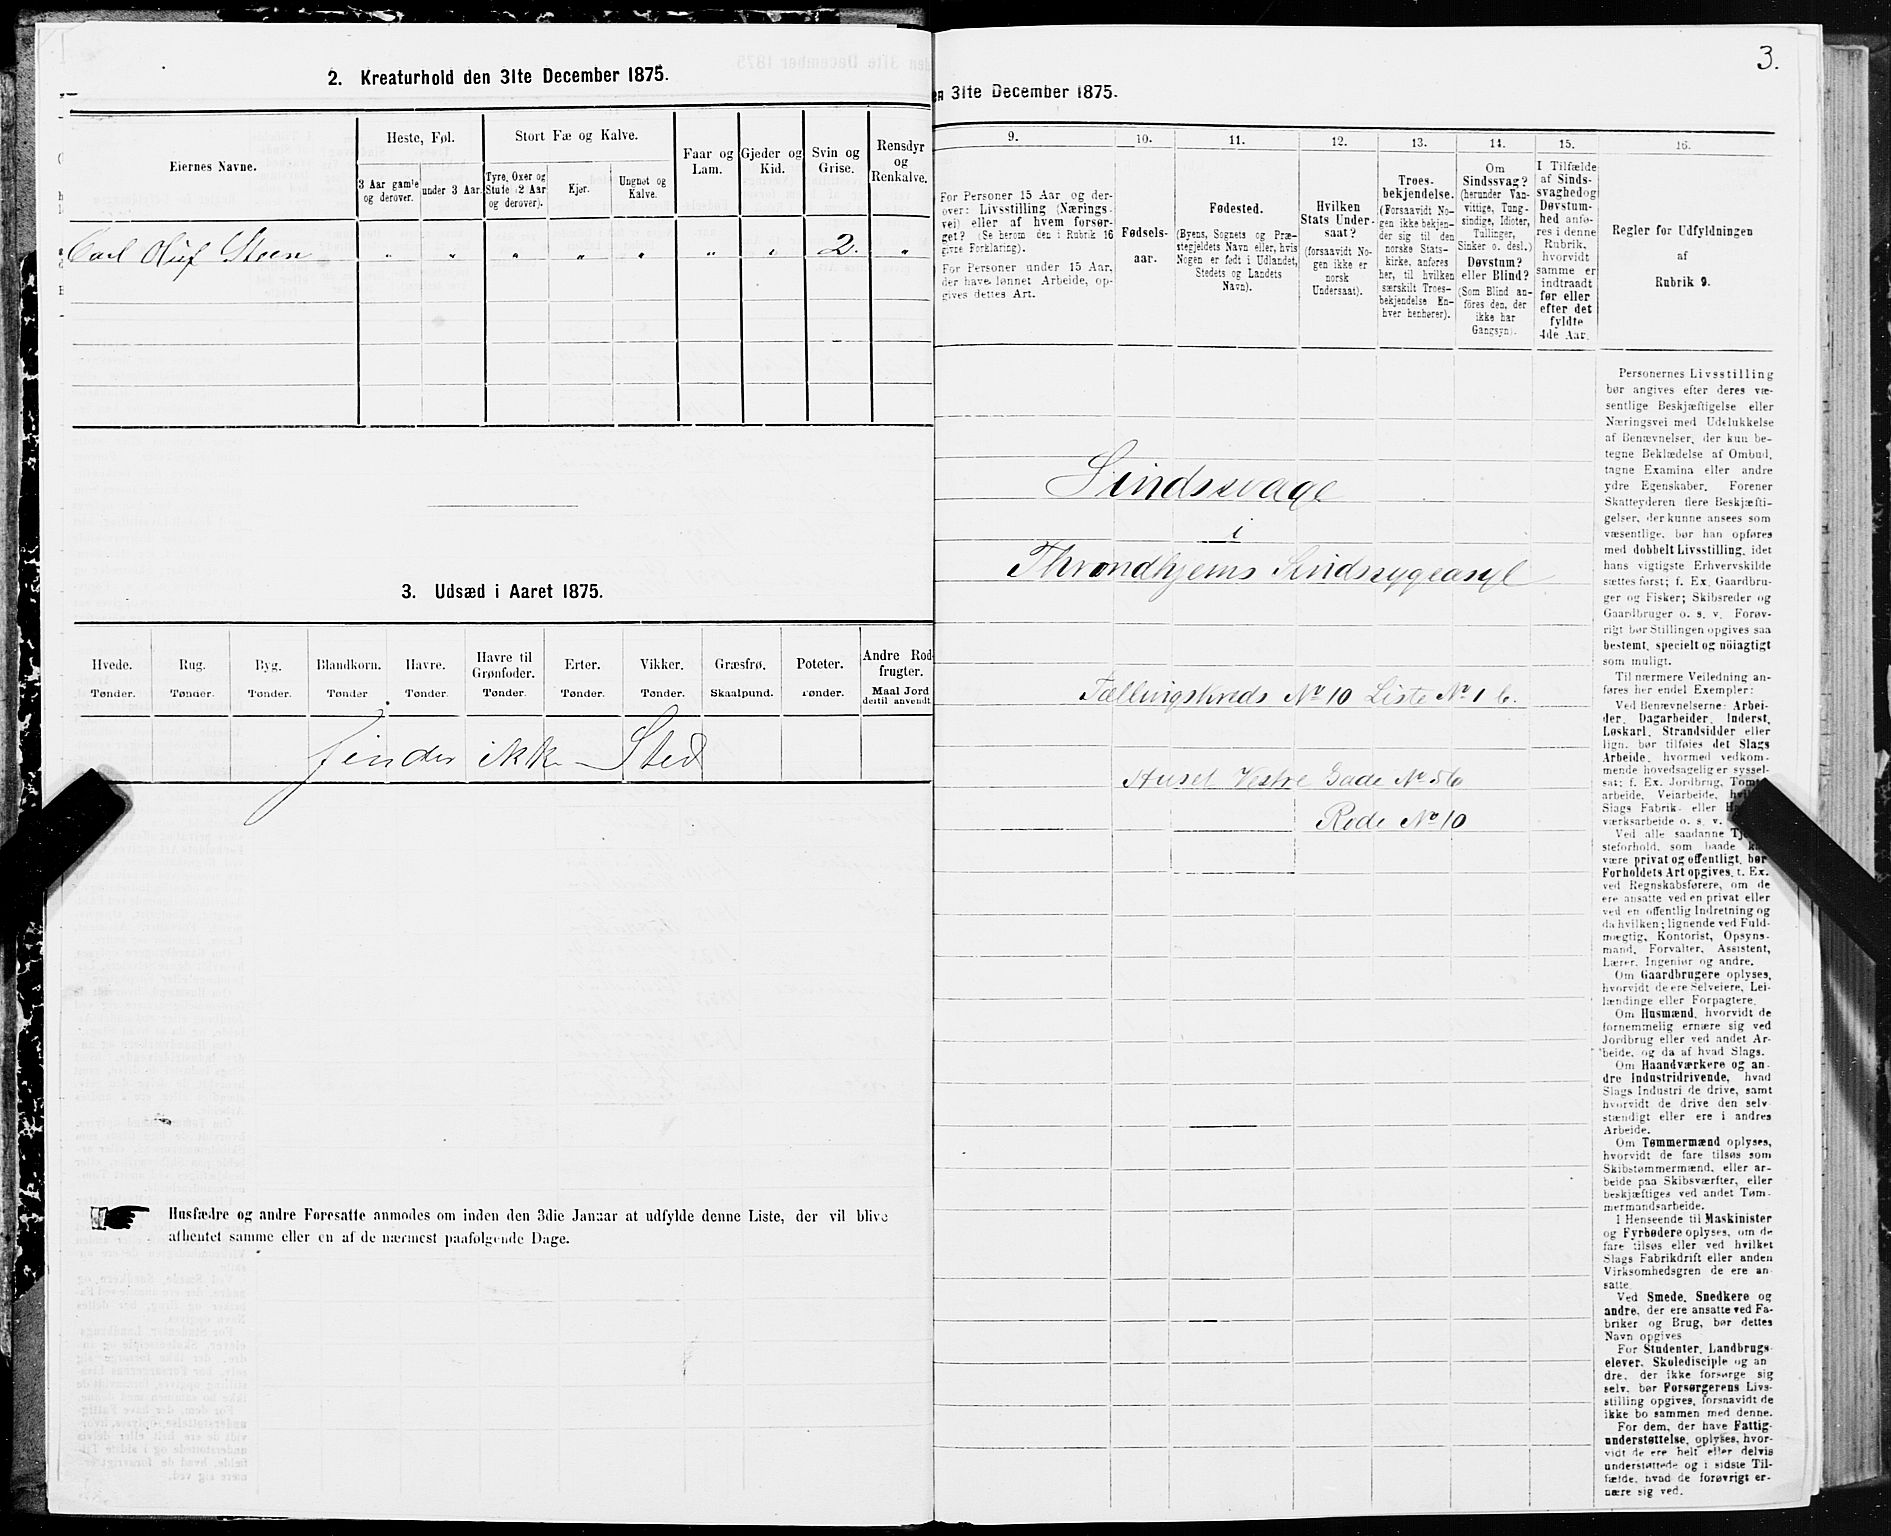 2. Kreaturhold den 31te December 1875.
Eiernes Navne.
Heste, Føl.
Stort Fæ og Kalve.
Faar og Lam.
Gjeder og Kid.
Svin og Grise.
Rensdyr og Renkalve.
3 Aar gamle og derover.
under 3 Aar.
Tyre, Oxer og Stude (2 Aar og derover).
Kjør.
Ungnøt og Kalve.
Carl Oluf Steen " " " " " " " 2. "
3. Udsæd i Aaret 1875.
Hvede. Rug. Byg. Blandkorn. Havre. Havre til Grønfoder. Erter. Vikker. Græsfrø. Poteter. Andre Rodfrugter.
Tønder. Tønder. Tønder. Tønder Tønder. Tønder. Tønder. Tønder. Skaalpund. Tønder. Maal Jord dertil anvendt.
finder ikke Sted
Husfædre og andre Foresatte anmodes om inden den 3die Januar at udfylde denne Liste, der vil blive
afhentet samme eller en af de nærmest paafølgende Dage.
3.
en 31te December 1875.
9. 10. 11. 12. 13. 14. 15. 16.
For Personer 15 Aar og derover: Livsstilling (Næringsvei) eller af hvem forsørget? (Se herom den i Rubrik 16 givne Forklaring).
For Personer under 15 Aar, der have lønnet Arbeide, opgives dettes Art.
Fødselsaar.
Fødested.
(Byens, Sognets og Præstegjeldets Navn eller, hvis Nogen er født i Udlandet, Stedets og Landets Navn).
Hvilken Stats Undersaat?
(forsaavidt Nogen ikke er norsk Undersaat).
Troesbekjendelse.
(Forsaavidt Nogen ikke bekjender sig til den norske Statskirke, anføres her, til hvilken særskilt Troesbekjendelse Enhver henhører).
Om Sindssvag?
(herunder Vanvittige, Tungsindige, Idioter, Tullinger, Sinker o. desl.)
Døvstum? eller Blind?
(Som Blind anføres den, der ikke har Gangsyn).
I Tilfælde af Sindssvaghed og Døvstumhed anføres i denne Rubrik, hvorvidt samme er indtraadt før eller efter det fyldte 4de Aar.
Regler for Udfyldningen
af
Rubrik 9.
Sindssvage
i
Throndhjems Sindssygeasyl
Tællingskreds No 10 Liste No 1 b.
Huset Vestre Gade No 56
Rode No 10
Personernes Livsstilling
bør angives efter deres væ-
sentlige Beskjæftigelse eller
Næringsvei med Udelukkelse
af Benævnelser, der kun be-
tegne Beklædelse af Ombud,
tagne Examina eller andre
ydre Egenskaber. Forener
Skatteyderen flere Beskjæfti-
gelser, der kunne ansees som
væsentlige, bør han opføres
med dobbelt Livsstilling, idet
hans vigtigste Erhvervskilde
sættes først; f. Ex. Gaardbru-
ger og Fisker; Skibsreder og
Gaardbruger o. s. v. Forøv-
rigt bør Stillingen opgives saa
bestemt, specielt og nöiagtigt
som muligt.
Til nærmere Veiledning an-
føres her endel Exempler:
Ved Benævnelserne: Arbei-
der, Dagarbeider, Inderst,
Løskarl, Strandsidder eller
lign. bør tilføies det Slags
Arbeide, hvormed vedkom-
mende hovedsagelig er syssel-
sat; f. Ex. Jordbrug, Tomt-
arbeide, Veiarbeide,
Slags Fabrik- eller
værksarbeide o. s. v.
Ved alle saadanne
steforhold, som baade
være privat og offentligt, bør
Forholdets Art opgives, t. Ex.
ved Regnskabsførere, om de
ere ansatte ved en privat eller
ved en offentlig Indretning og
da hvilken; lignende ved Fuld-
mægtig, Kontorist, Opsyns-
mand, Forvalter, Assistent,
Lærer, Ingeniør og andre.
Om Gaardbrugere oplyses,
hvorvidt de ere Selveiere, Lei-
lændinge eller Forpagtere.
Om Husmænd, hvorvidt de
fornemmelig ernære sig ved
Jordbrug eller ved andet Ar-
beide, og da af hvad Slags.
Om Haandværkere og an-
dre Industridrivende, hvad
Slags Industri de drive, samt
hvorvidt de drive den selv-
stændigt eller ere i andres
Arbeide.
Om Tømmermænd oplyses,
hvorvidt de fare tilsøs som
Skibstømmermænd, eller ar-
beide paa Skibsværfter, eller
beskjæftiges ved andet Tøm-
mermandsarbeide.
I Henseende til Maskinister
og Fyrbødere oplyses, om de
fare tilsøs eller ved hvilket
Slags Fabrikdrift eller anden
Virksomhedsgren de ere an-
satte.
Ved Smede, Snedkere og
andre, der ere ansatte ved Fa-
briker og Brug, bør dettes
Navn opgives
For Studenter, Landbrugs-
elever, Skoledisciple og an-
dre, der ikke forsørge sig
selv, bør Forsørgerens Livs-
stilling opgives, forsaavidt de
ikke bo sammen med denne.
For dem, der have Fattig-
understøttelse, oplyses, hvor-
vidt de ere helt eller delvis
understøttede og i sidste Til-
fælde, hvad de forøvrigt er-
nære sig ved.